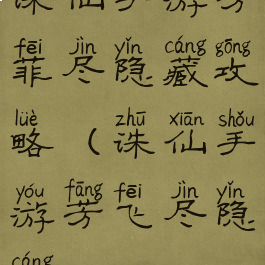 诛仙手游芳
fēi jìn yǐn cáng gōng
菲尽隐藏攻
lüè zhū xiān shǒu
略（诛仙手
yóu fāng fēi jìn yǐn
游芳飞尽隐
cáng